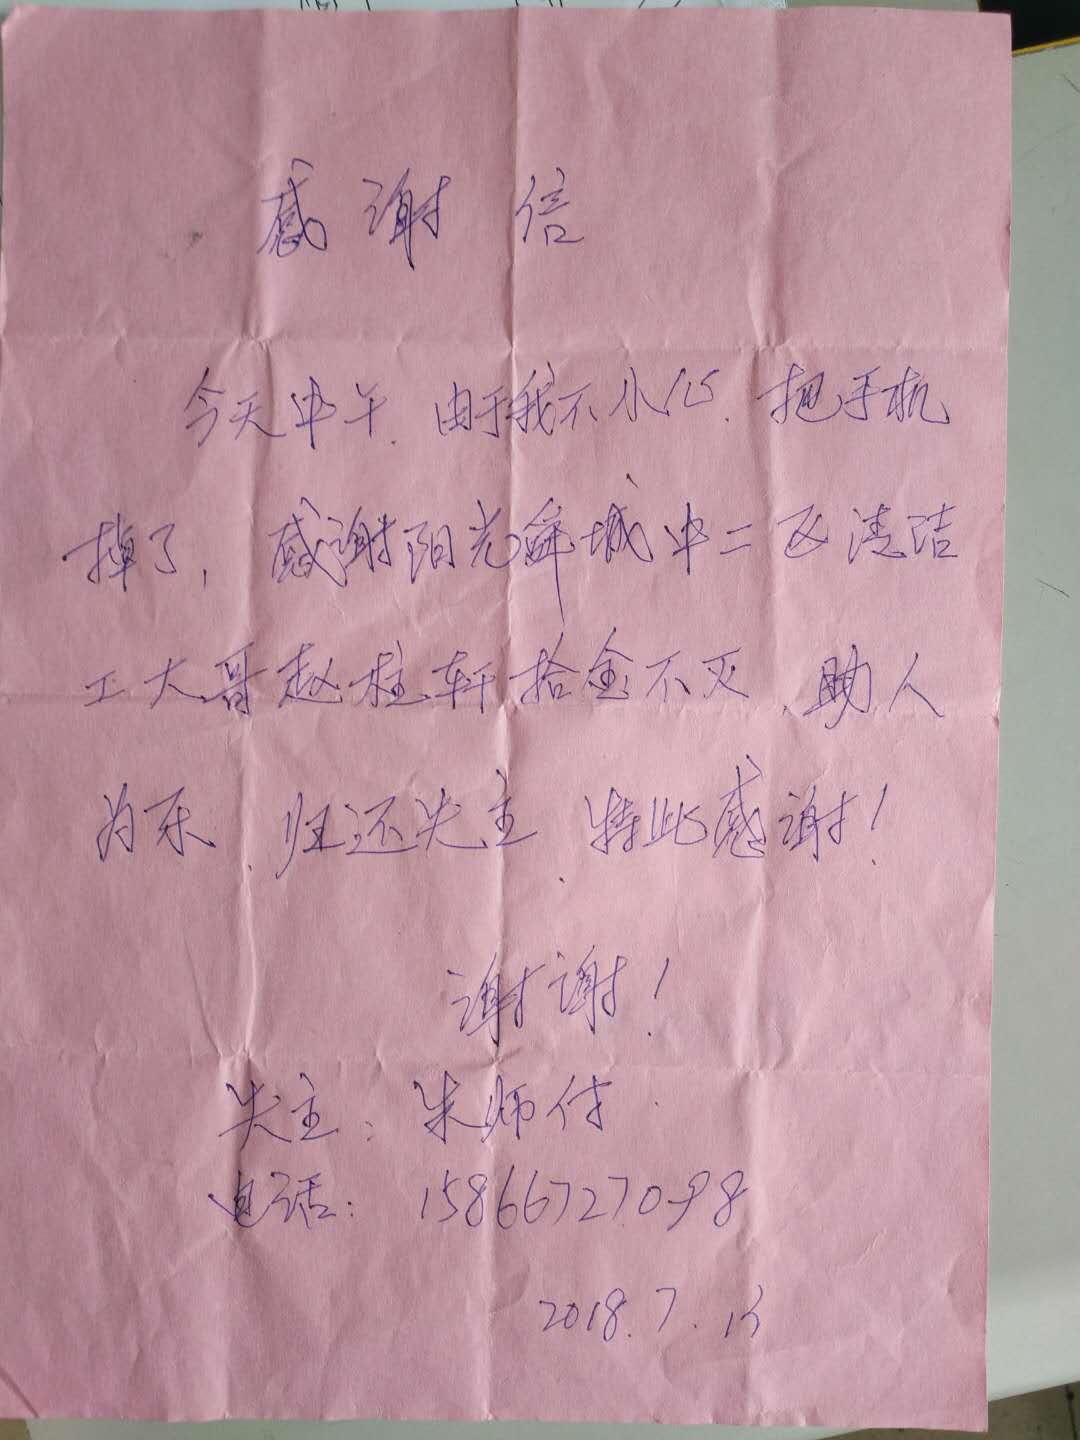 感谢信
今天中午.由于我不小心.把手机
掉了,感谢阳光舜城中二区清洁
工大哥赵柱轩拾金不灭、助人
为乐、归还失主、特此感谢!
谢谢!
失主:朱师付
电话:15866727098
2018.7.